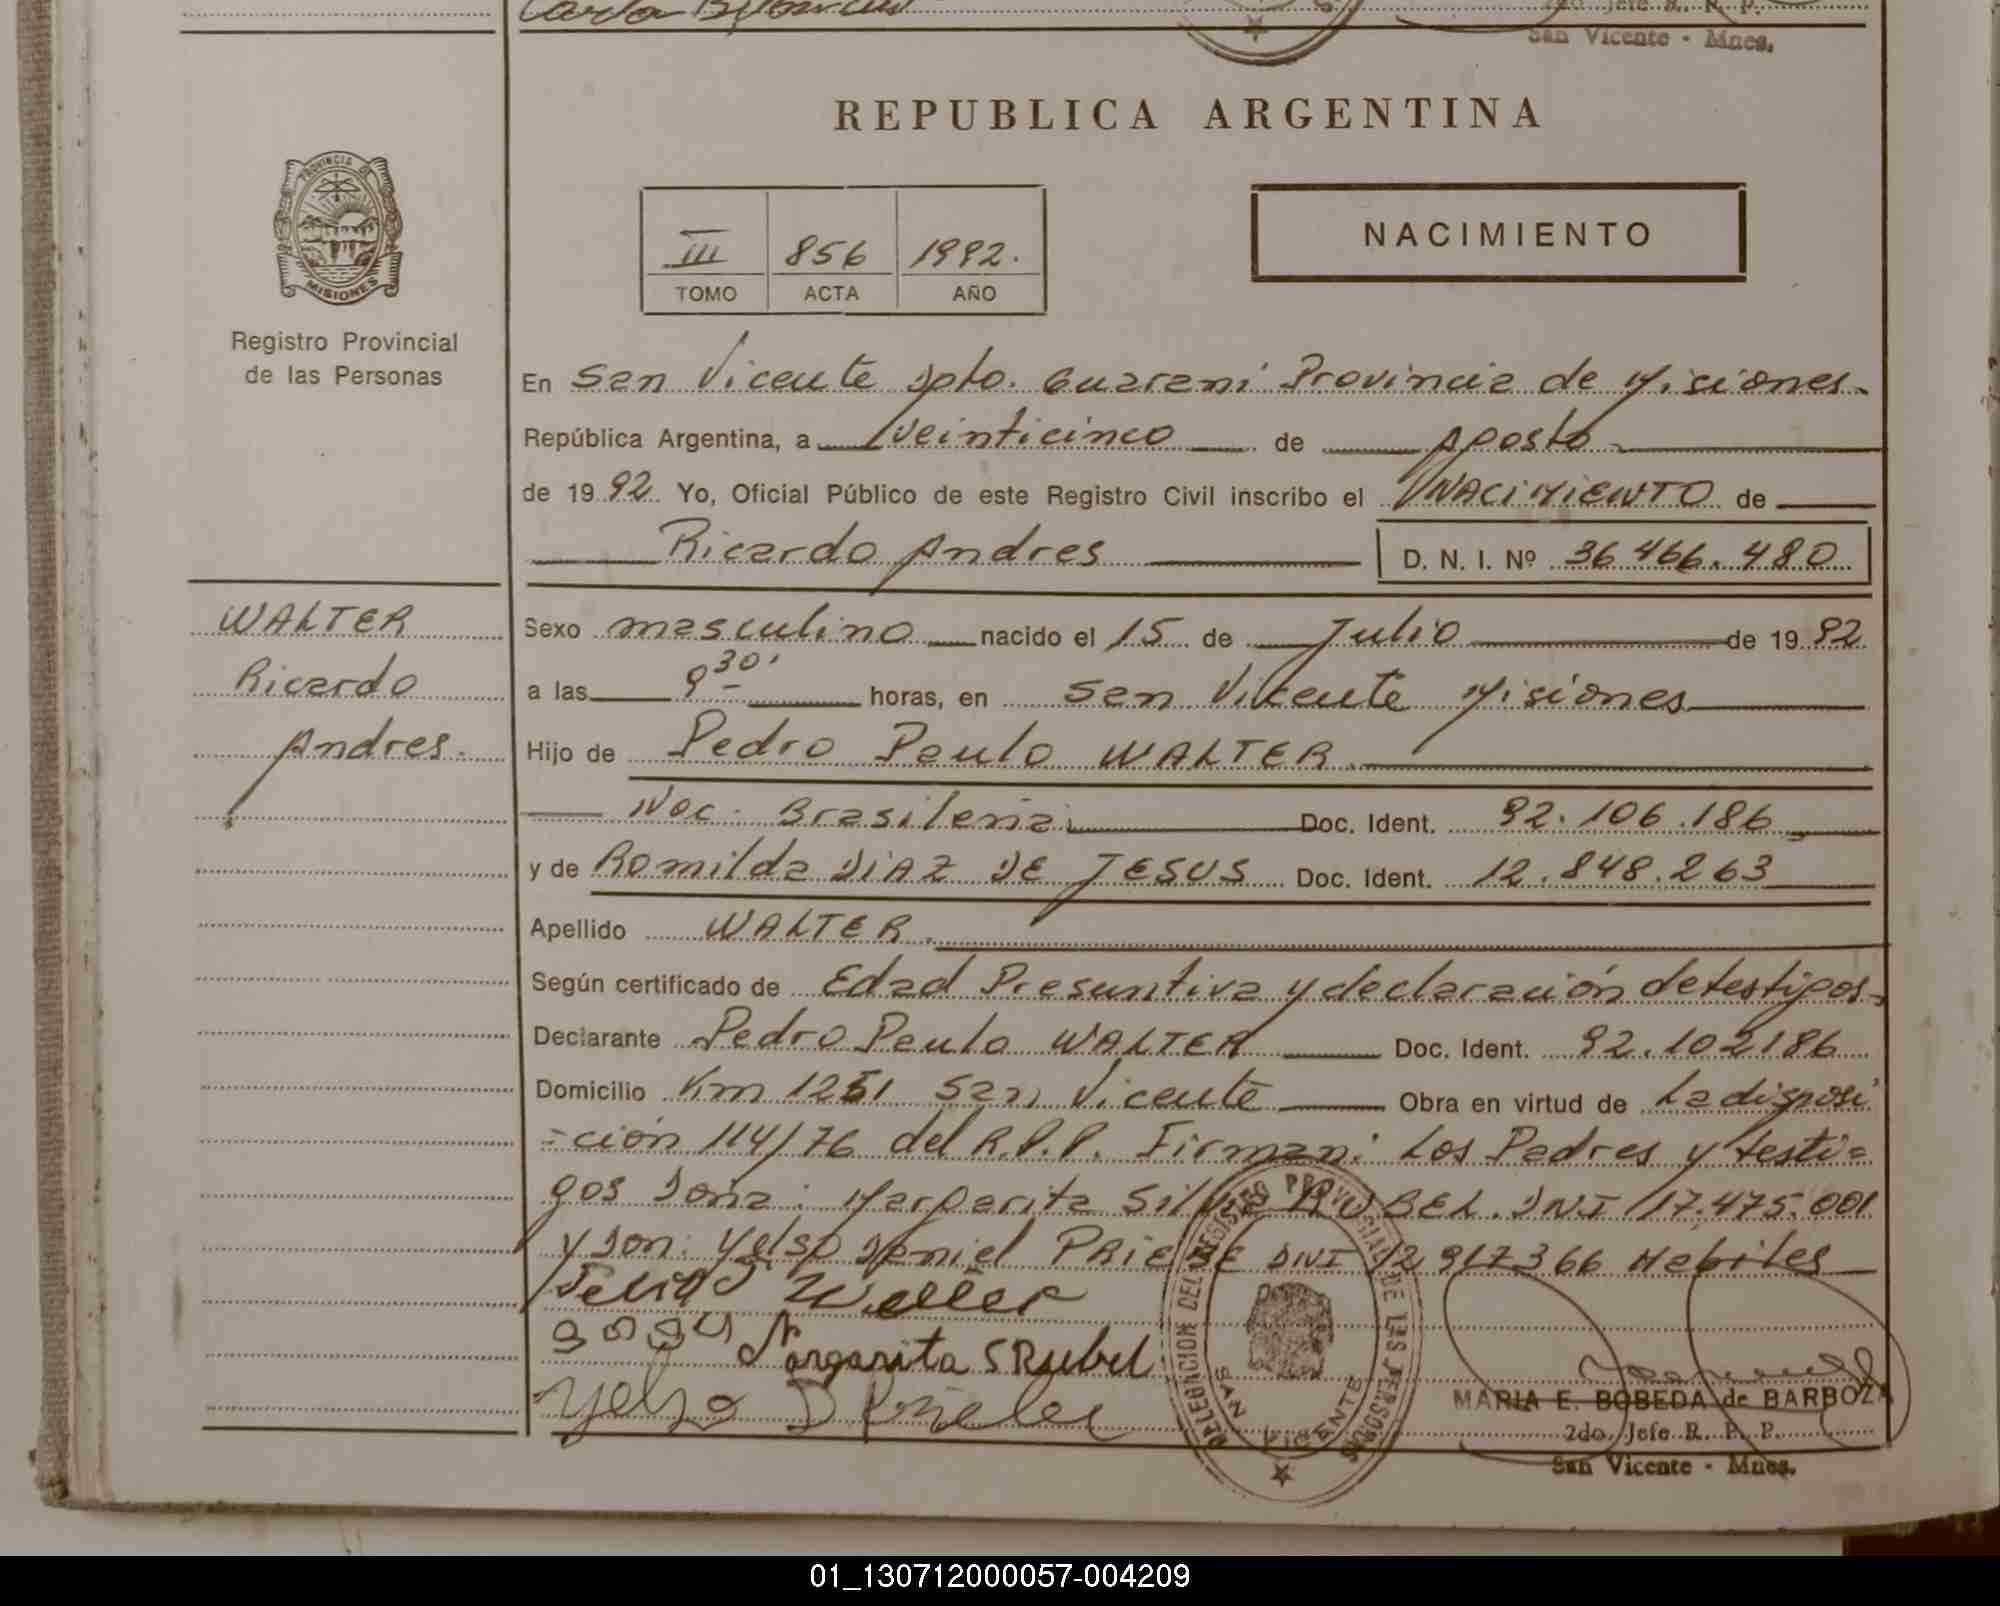 San Vicente - Mnes.
REPUBLICA ARGENTINA
PROVINCIA DE
MISIONES
Registro Provincial
de las Personas
III 856 1992.
TOMO ACTA AÑO
NACIMIENTO
En San Vicente Dpto. Guarani Provincia de Misiones
República Argentina, a veinticinco de Agosto
de 1992 Yo, Oficial Público de este Registro Civil inscribo el NACIMIENTO de
Ricardo Andres D. N. I. Nº 36 466. 480
WALTER
Ricardo
Andres.
Sexo masculino nacido el 15 de Julio de 1992
a las 9 30' horas, en San Vicente Misiones
Hijo de Pedro Paulo WALTER
Nac. Brasileña Doc. Ident. 92.106.186
y de Romilda DIAZ DE JESUS Doc. Ident. 12.848.263
Apellido WALTER
Según certificado de Edad Presuntiva y declaración de testigos
Declarante Pedro Paulo WALTER Doc. Ident. 92.102186
Domicilio Km 1251 San Vicente Obra en virtud de La disposi
=ción 114/76 del R.P.P. Firman: Los Padres y testi=
gos Doña: Margarita Silva RUBEL. DNI 17.475.001
y Don: Yelso Daniel PRIEBE DNI 12 917366 Habiles
Margarita S Rubel
Yelso D
DELEGACION DEL REGISTRO PROVINCIAL DE LAS PERSONAS
SAN VICENTE
MARIA E. BOBEDA de BARBOZA
2do. Jefe R. P. P.
San Vicente - Mnes.
01_130712000057-004209